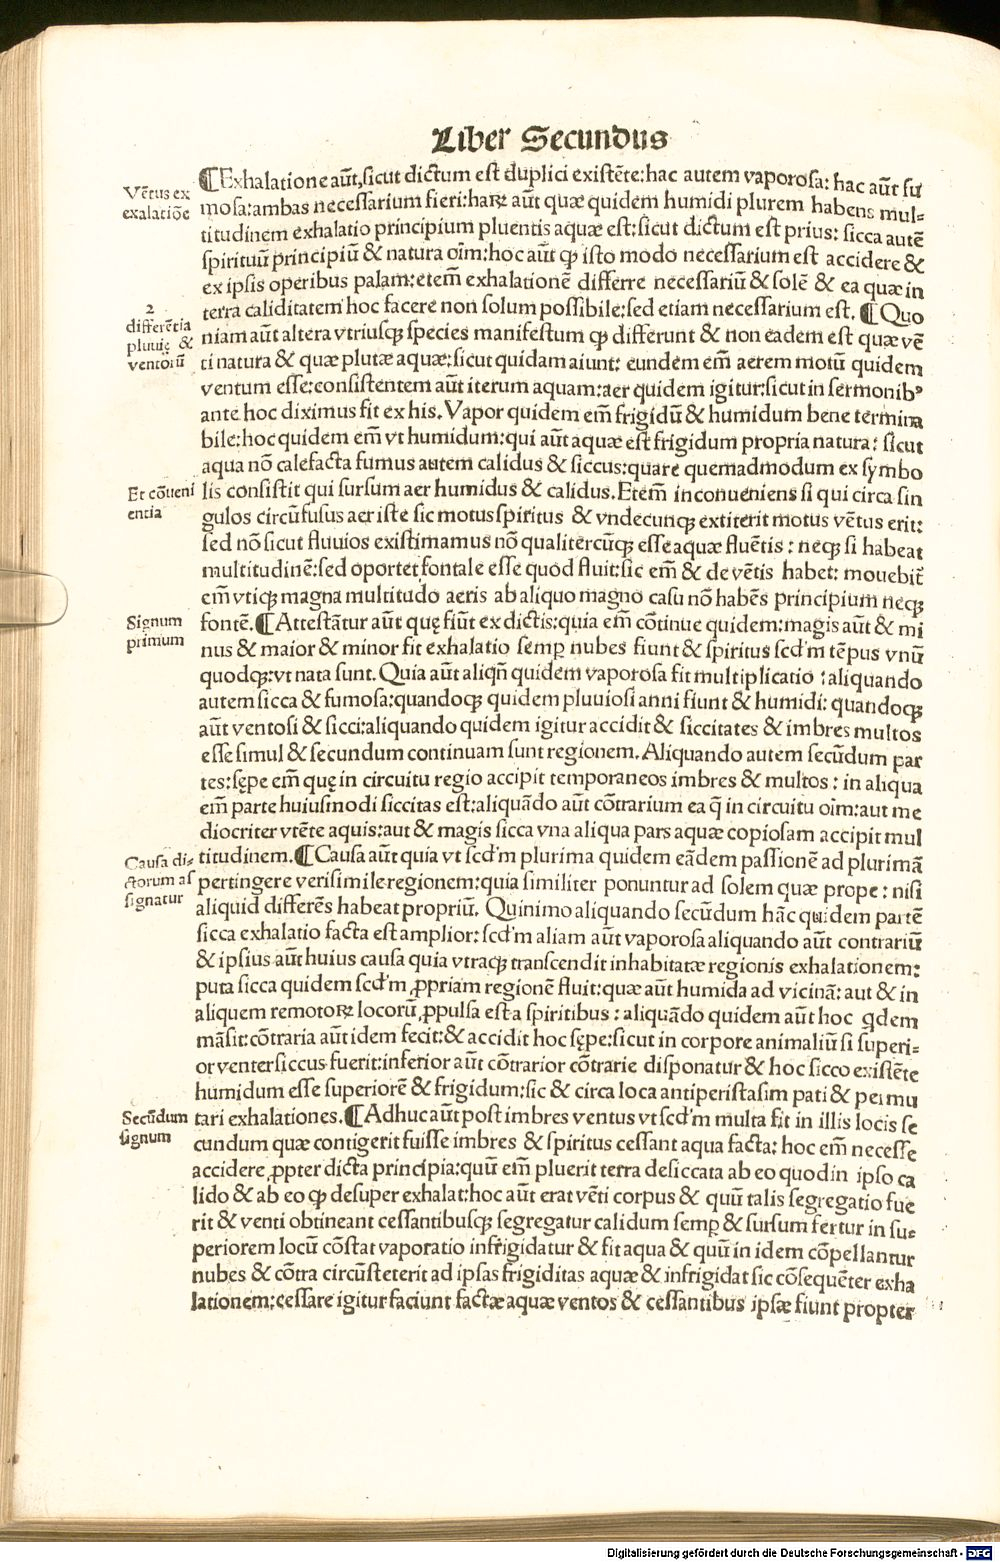 Liber Secundus
¶Exhalatione aūt,sicut dictum est duplici existēte:hac autem vaporosa: hac aūt fu
Vētus ex
exalatiōe
mosa:ambas necessarium fieri:haꝝ aūt quæ quidem humidi plurem habens mul⸗
titudinem exhalatio principium pluentis aquæ est:sicut dictum est prius: sicca autē
spirituū principiū & natura oīm:hoc aūt ꝙ isto modo necessarium est accidere &
ex ipsis operibus palam:etem̄ exhalationē differre necessariū & solē & ea quæ in
terra caliditatem hoc facere non solum possibile:sed etiam necessarium est. ¶Quo
2
differētia
pluuię &
ventorū
niam aūt altera vtriusqꝫ species manifestum ꝙ differunt & non eadem est quæ vē
ti natura & quæ plutæ aquæ:sicut quidam aiunt: eundem em̄ aerem motū quidem
ventum esse:consistentem aūt iterum aquam:aer quidem igitur:sicut in sermonibꝰ
ante hoc diximus fit ex his. Vapor quidem em̄ frigidū & humidum bene termina
bile:hoc quidem em̄ vt humidum:qui aūt aquæ est frigidum propria natura: sicut
aqua nō calefacta fumus autem calidus & siccus:quare quemadmodum ex symbo
Et cōueni
entia
lis consistit qui sursum aer humidus & calidus. Etem̄ inconueniens si qui circa sin
gulos circūfusus aer iste sic motus spiritus & vndecunqꝫ extiterit motus vētus erit:
sed nō sicut fluuios existimamus nō qualitercūqꝫ esse aquæ fluētis : neqꝫ si habeat
multitudinē:sed oportet fontale esse quod fluit:sic em̄ & de vētis habet: mouebit̄
em̄ vtiqꝫ magna multitudo aeris ab aliquo magno casu nō habēs principium neqꝫ
Signum
primum
fontē. ¶Attestātur aūt quę fiūt ex dictis:quia em̄ cōtinue quidem:magis aūt & mi
nus & maior & minor fit exhalatio semꝑ nubes fiunt & spiritus scd'm tēpus vnū
quodqꝫ:vt nata sunt. Quia aūt aliqn̄ quidem vaporosa fit multiplicatio : aliquando
autem sicca & fumosa:quandoqꝫ quidem pluuiosi anni fiunt & humidi: quandoqꝫ
aūt ventosi & sicci:aliquando quidem igitur accidit & siccitates & imbres multos
esse simul & secundum continuam sunt regionem. Aliquando autem secūdum par
tes:sępe em̄ quę in circuitu regio accipit temporaneos imbres & multos : in aliqua
em̄ parte huiusmodi siccitas est:aliquādo aūt cōtrarium ea q̄ in circuitu oīm:aut me
diocriter vtēte aquis:aut & magis sicca vna aliqua pars aquæ copiosam accipit mul
Causa di⸗
ctorum as
signatur
titudinem. ¶Causa aūt quia vt scd'm plurima quidem eādem passionē ad plurimā
pertingere verisimile regionem:quia similiter ponuntur ad solem quæ prope : nisi
aliquid differēs habeat propriū. Quinimo aliquando secūdum hāc quidem partē
sicca exhalatio facta est amplior: scd'm aliam aūt vaporosa aliquando aūt contrariū
& ipsius aūt huius causa quia vtraqꝫ transcendit inhabitatæ regionis exhalationem:
puta sicca quidem scd'm ꝓpriam regionē fluit:quæ aūt humida ad vicinā: aut & in
aliquem remotoꝝ locorū ꝓpulsa est a spiritibus : aliquādo quidem aūt hoc qdem
māsit:cōtraria aūt idem fecit:& accidit hoc sępe:sicut in corpore animaliū si superi⸗
or venter siccus fuerit:inferior aūt cōtrarior cōtrarie disponatur & hoc sicco existēte
humidum esse superiorē & frigidum:sic & circa loca antiperistasim pati & permu
Secūdum
signum
tari exhalationes. ¶Adhuc aūt post imbres ventus vt scd'm multa fit in illis locis se
cundum quæ contigerit fuisse imbres & spiritus cessant aqua facta: hoc em̄ necesse
accidere ꝓpter dicta principia:quū em̄ pluerit terra desiccata ab eo quod in ipso ca
lido & ab eo ꝙ desuper exhalat:hoc aūt erat vēti corpus & quū talis segregatio fue
rit & venti obtineant cessantibusqꝫ segregatur calidum semꝑ & sursum fertur in su⸗
periorem locū cōstat vaporatio infrigidatur & fit aqua & quū in idem cōpellantur
nubes & cōtra circūsteterit ad ipsas frigiditas aquæ & infrigidat sic cōsequēter exha
lationem:cessare igitur faciunt factæ aquæ ventos & cessantibus ipsæ fiunt propter
Digitalisierung gefördert durch die Deutsche Forschungsgemeinschaft - DFG